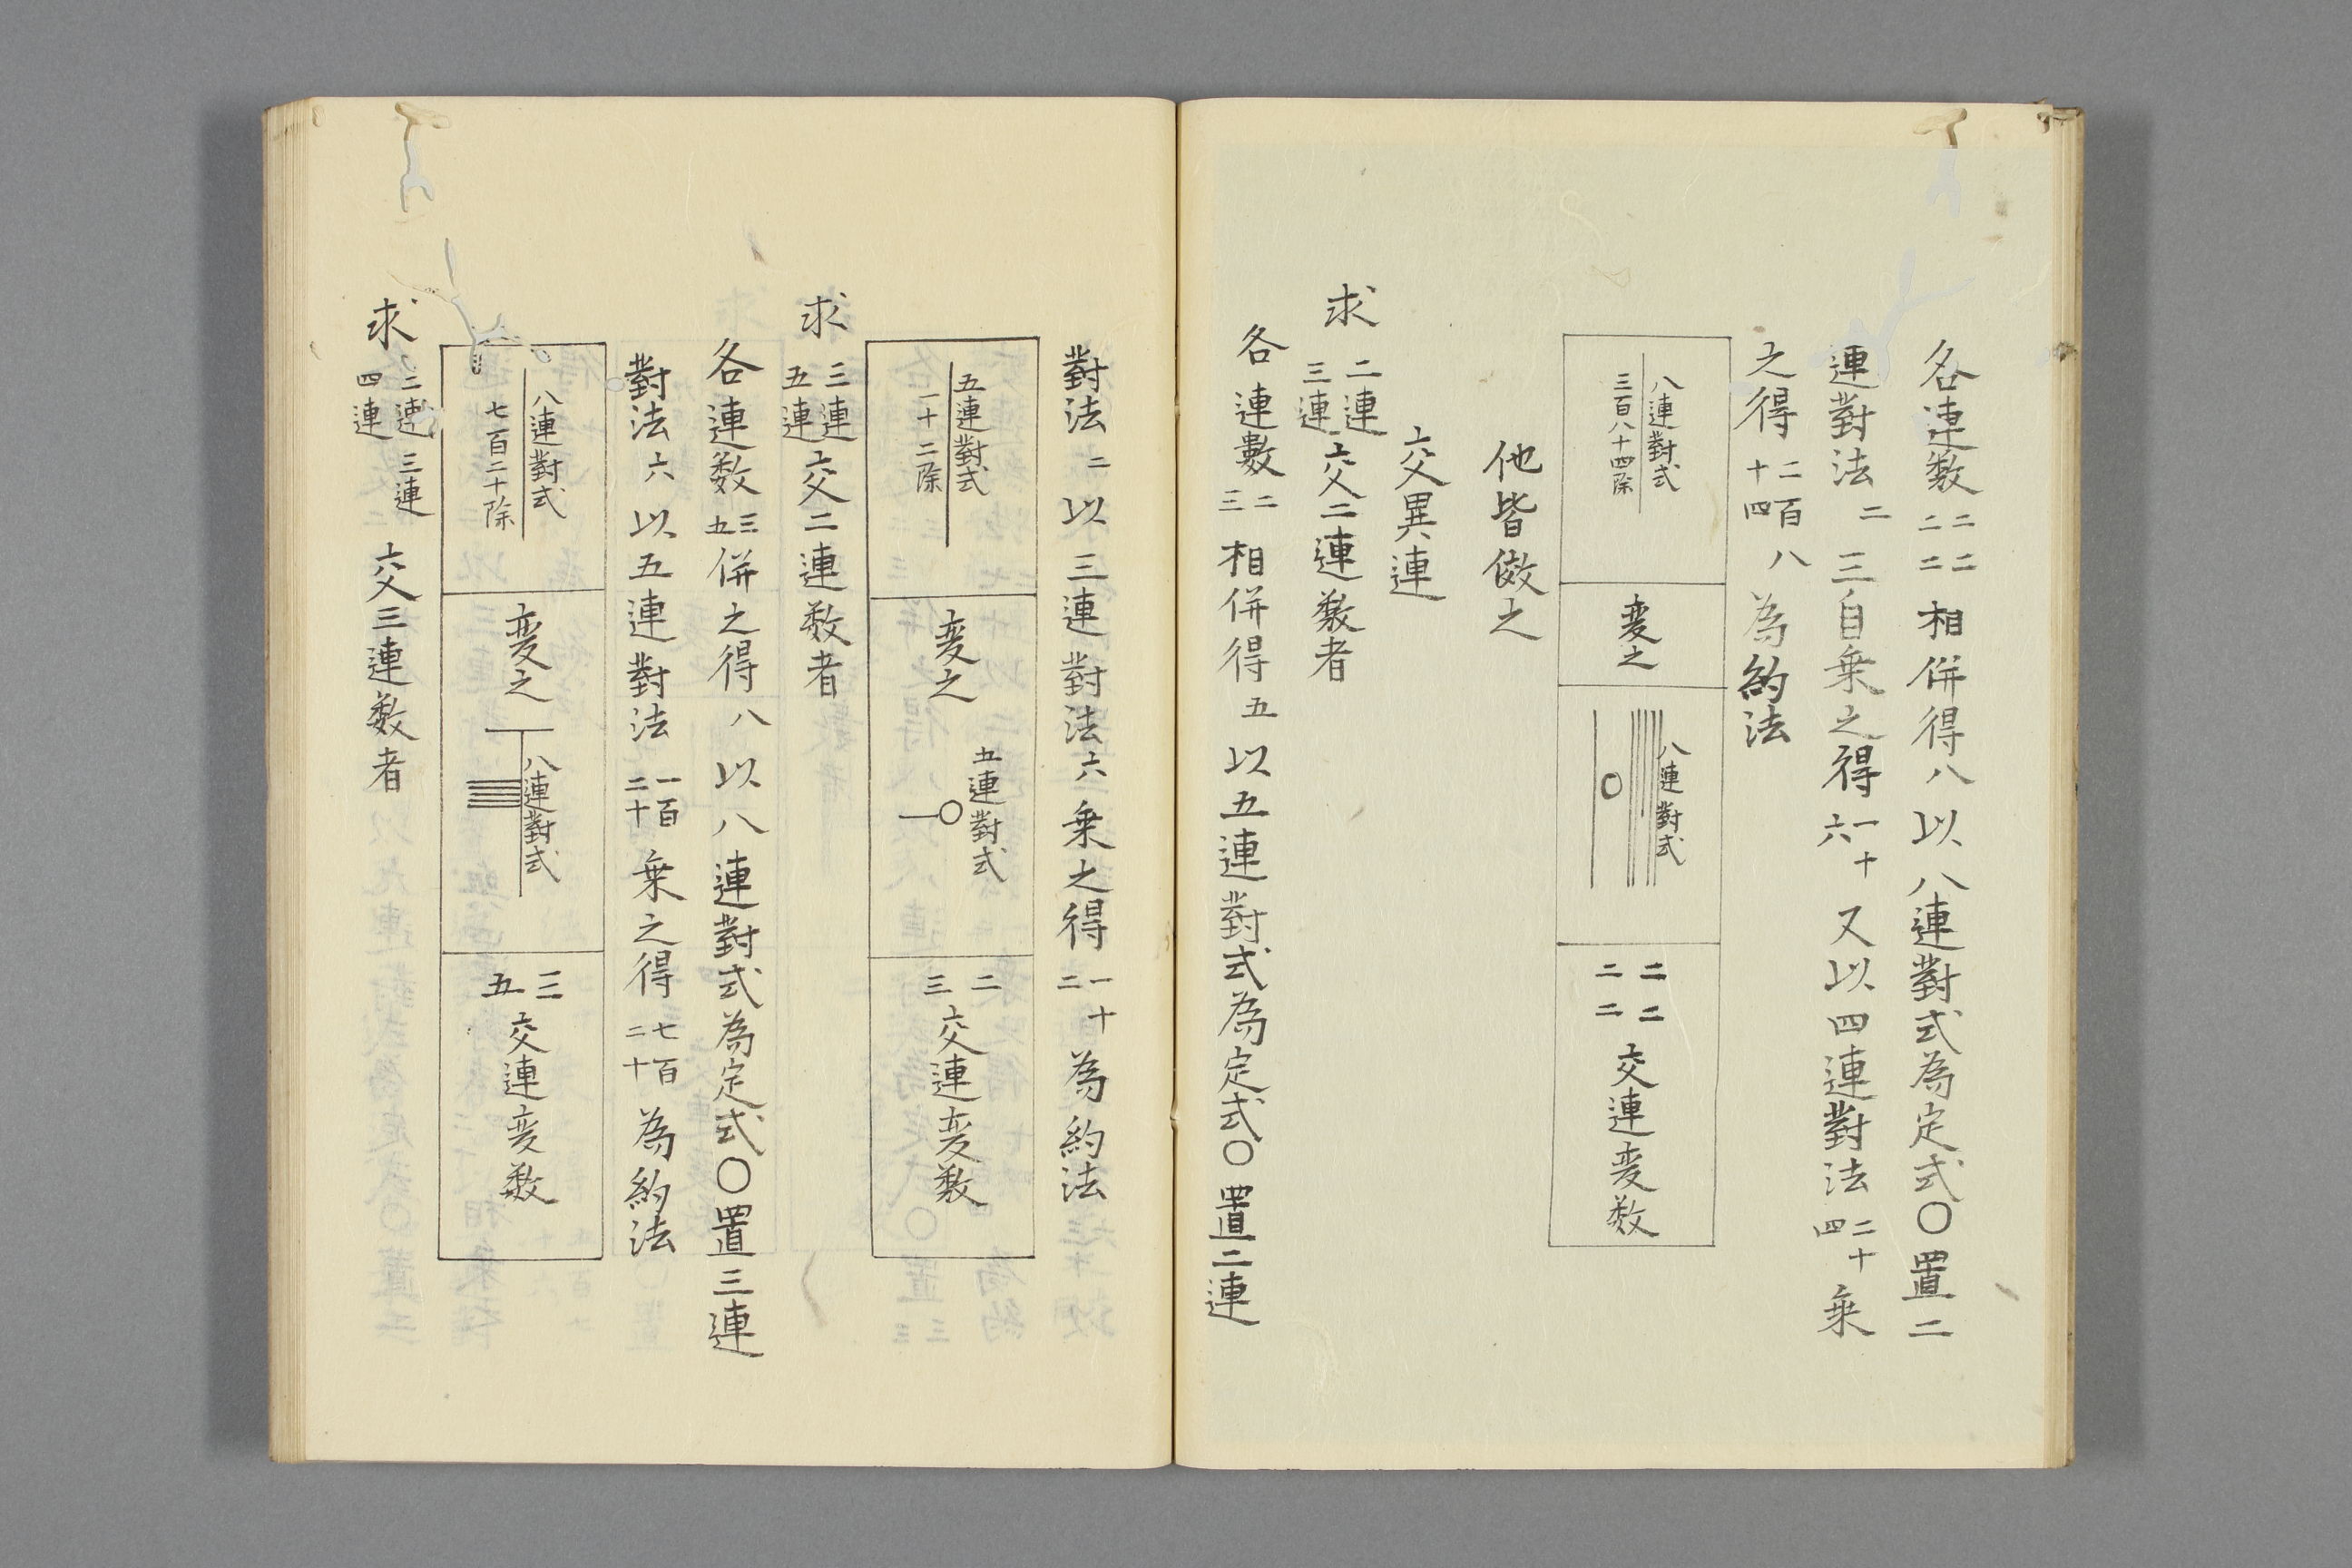 各連数二二二二相併得八以八連對式為定式〇置二
連對法二三自乗之得一十六又以四連對法二十四乗
之得二百八十四為約法
八連對式
三百八十四除
変之
八連對式
〇
二二
二二
交連変数
他皆倣之
交異連
求二連三連交二連数者
各連數二三相併得五以五連對式為定式〇置二連
對法二以三連對法六乗之得一十二為約法
五連對式
一十二除
変之
五連對式
一〇
二三
交連変数
求三連五連交二連数者
各連数三五併之得八以八連對式為定式〇置三連
對法六以五連對法一百二十乗之得七百二十為約法
八連對式
七百二十除
変之
八連對式
三五
交連変数
求二連三連四連交三連数者